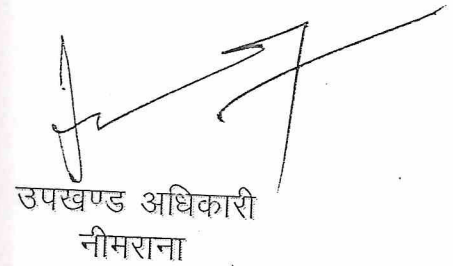 उपखण्ड अधिकारी
नीमराना